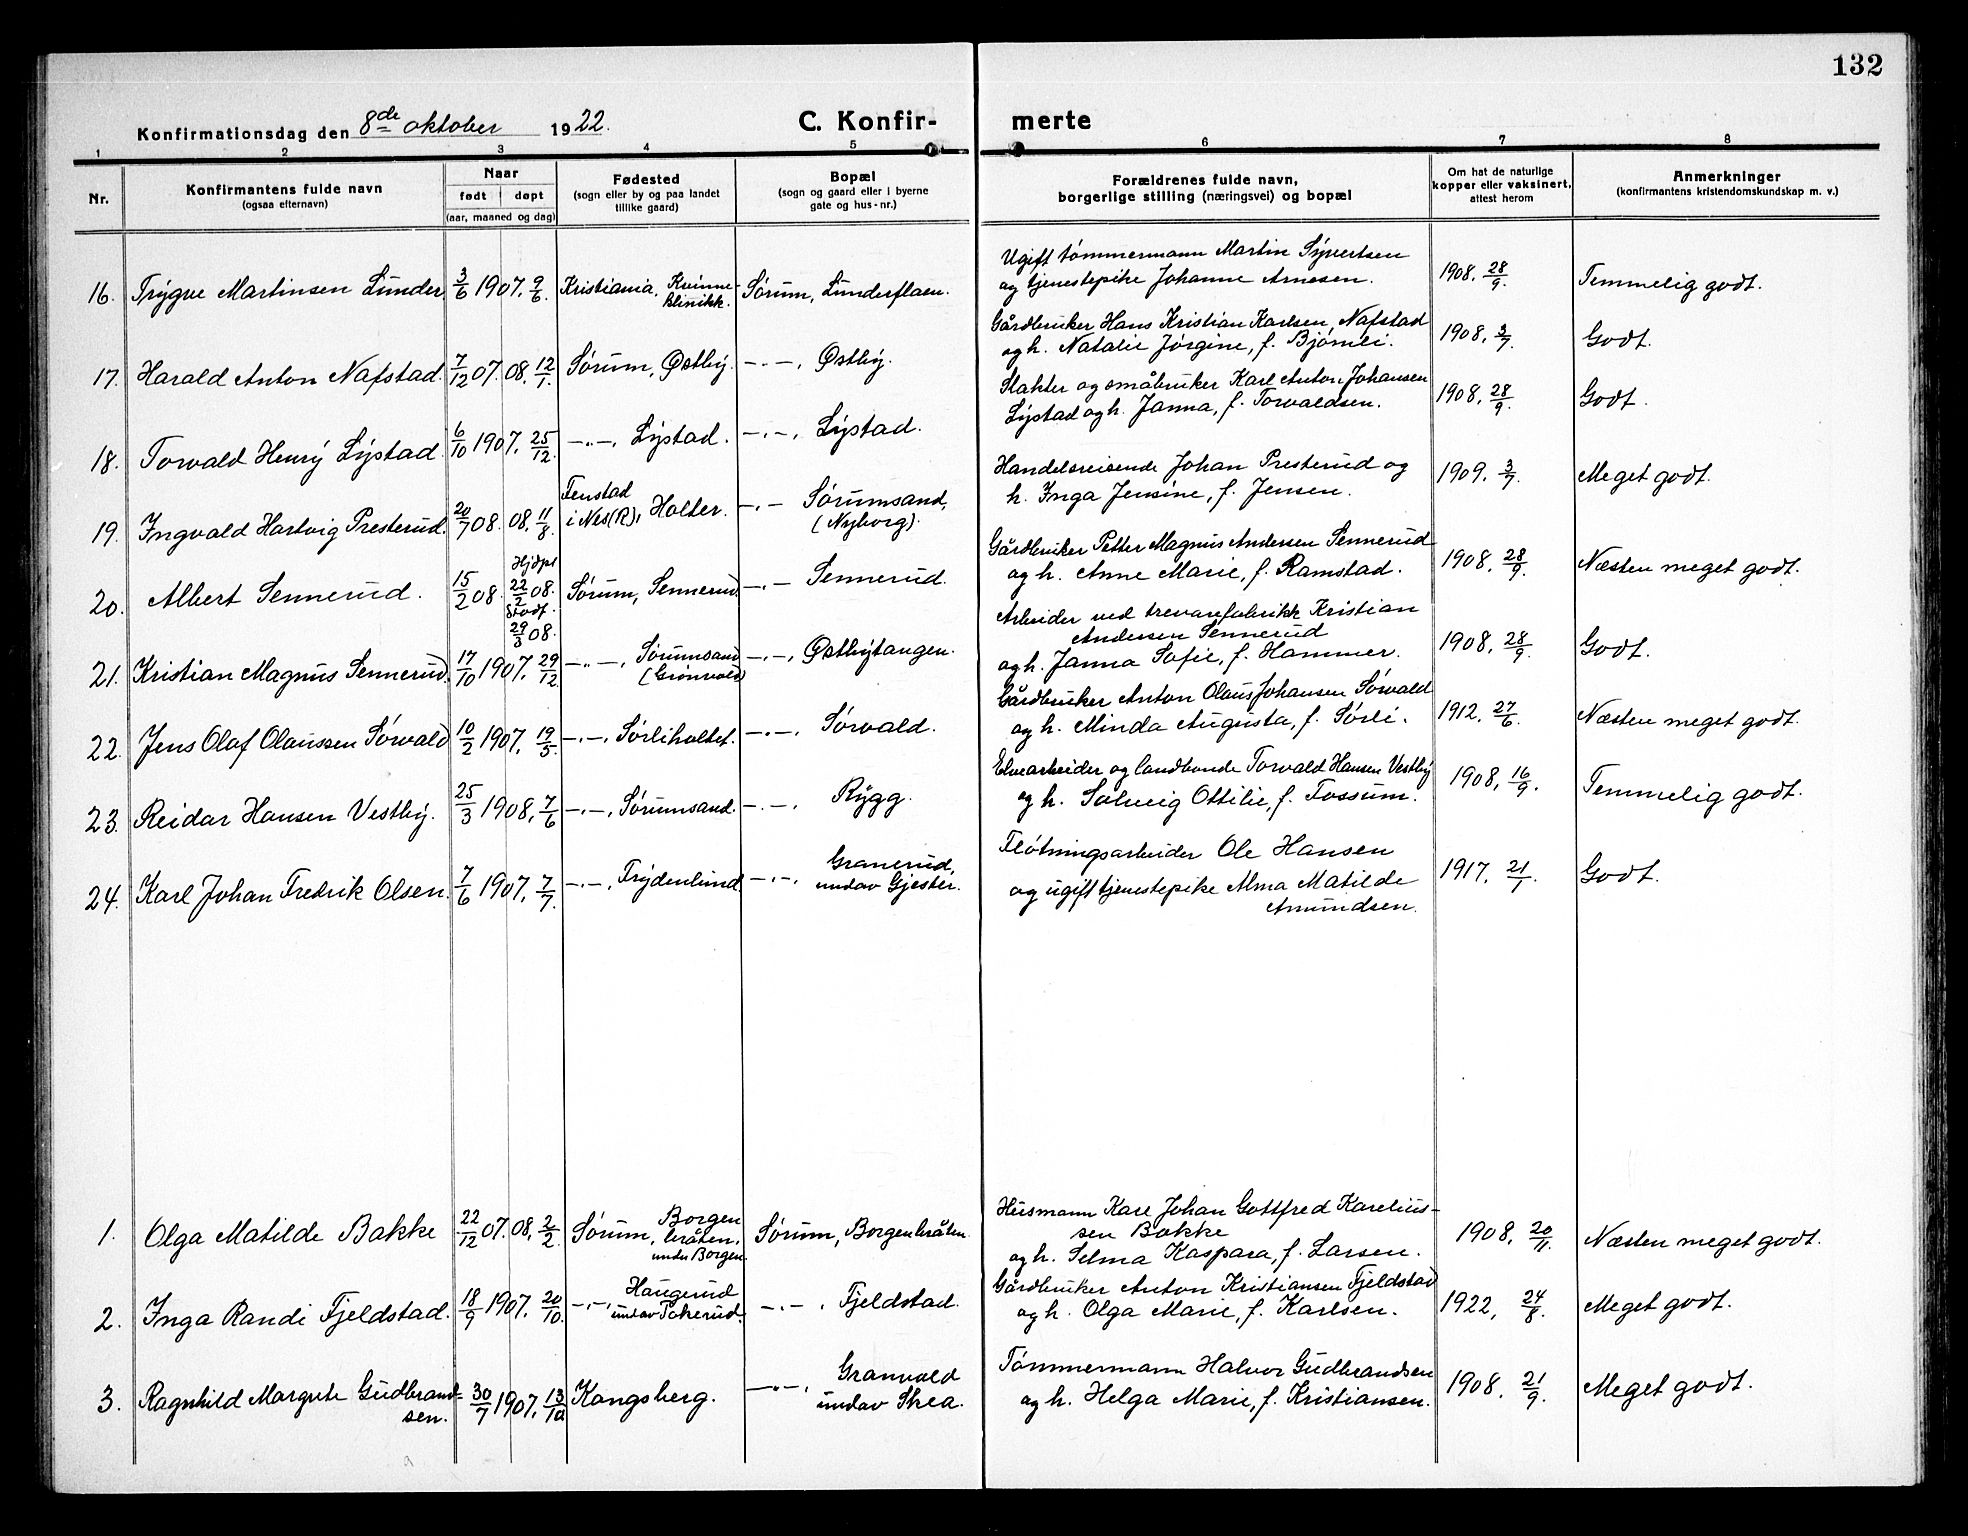 132
Konfirmationsdag den 8de oktober 1922.
C. Konfir-
merte
1 2 3 4 5 6 7 8
Nr.
Konfirmantens fulde navn
(ogsaa efternavn)
Naar
født døpt
(aar, maaned og dag)
Fødested
(sogn eller by og paa landet
tillike gaard)
Bopæl
(sogn og gaard eller i byerne
gate og hus-nr.)
Forældrenes fulde navn,
borgerlige stilling (næringsvei) og bopæl
Om hat de naturlige
kopper eller vaksinert,
attest herom
Anmerkninger
(konfirmantens kristendomskundskap m. v.)
16. Trygve Martinsen Lunder 3/6 1907. 9/6 Kristiania, Kvinne-
klinikk. Sørum, Lunderflaen.
Ugift tømmermann Martin Syvertsen
og tjenestepike Johanne Arnesen.
1908. 28/9. Temmelig godt.
17. Harald Anton Nafstad. 7/12 07. 08. 12/1. Sørum, Østby. -"-, Østby.
Gårdbruker Hans Kristian Karlsen Nafstad
og h. Natalie Jørgine, f. Bjørnli.
1908. 3/7. Godt.
18. Torvald Henry Lystad 6/10 1907. 25/12. -"-, Lystad. -"-, Lystad.
Slakter og småbruker Karl Anton Johansen
Lystad og h. Janna, f. Torvaldsen.
1908. 28/9. Godt.
19. Ingvald Hartvig Presterud. 20/7 08. 08. 11/8. Fenstad
i Nes (R), Holter. -"- Sørumsand,
(Nyborg).
Handelsreisende Johan Presterud og
h. Inga Jensine, f. Jensen.
1909. 3/7. Meget godt.
20. Albert Sennerud. 15/2 08. Hjdpt
22/2 08.
Stadf.
29/3 08.
Sørum, Sennerud. -"- Sennerud.
Gårdbruker Petter Magnus Andersen Sennerud
og h. Anne Marie, f. Ramstad.
1908. 28/9. Næsten meget godt.
21. Kristian Magnus Sennerud. 17/10 1907. 29/12. -"-, Sørumsand
(Grønvold) -"-, Østbytangen.
Arbeider ved trevarefabrikk Kristian
Andersen Sennerud
og h. Janna Sofie, f. Hammer.
1908. 28/9. Godt.
22. Jens Olaf Olaussen Sørvald 10/2 1907. 19/5. -"-, Sørliholtet. -"-, Sørvald.
Gårdbruker Anton Olaus Johansen Sørvald
og h. Minda Augusta, f. Sørli.
1912. 27/6. Næsten meget godt.
23. Reidar Hansen Vestby. 25/3 1908. 7/6 -"-, Sørumsand. -"-, Rygg.
Elvearbeider og landbonde Torvald Hansen Vestby
og h. Solveig Ottilie, f. Fossum.
1908. 16/9. Temmelig godt.
24. Karl Johan Fredrik Olsen. 7/6 1907. 7/7. -"-, Frydenlund -"-, Granerud,
undav Gjester.
Fløtningsarbeider Ole Hansen
og ugift tjenestepike Alma Matilde
Amundsen.
1917. 21/1. Godt.
1. Olga Matilde Bakke 22/12 07. 08. 2/2 Sørum, Borgen
bråten,
under Borgen. Sørum, Borgenbråten.
Husmann Karl Johan Gottfred Karelius-
sen Bakke
og h. Selma Kaspara, f. Larsen.
1908. 20/11. Næsten meget godt.
2. Inga Randi Fjeldstad. 18/9 1907. 20/10. -"-, Haugerud
undav Tokerud. -"-, Fjeldstad.
Gårdbruker Anton Kristiansen Fjeldstad
og h. Olga Marie, f. Karlsen.
1922, 24/8. Meget godt.
3. Ragnhild Margrete Gudbrand-
sen. 30/7 1907. 13/10 Kongsberg. -"-, Granvold
undav Skea.
Tømmermann Halvor Gudbrandsen
og h. Helga Marie, f. Kristiansen.
1908. 21/9. Meget godt.